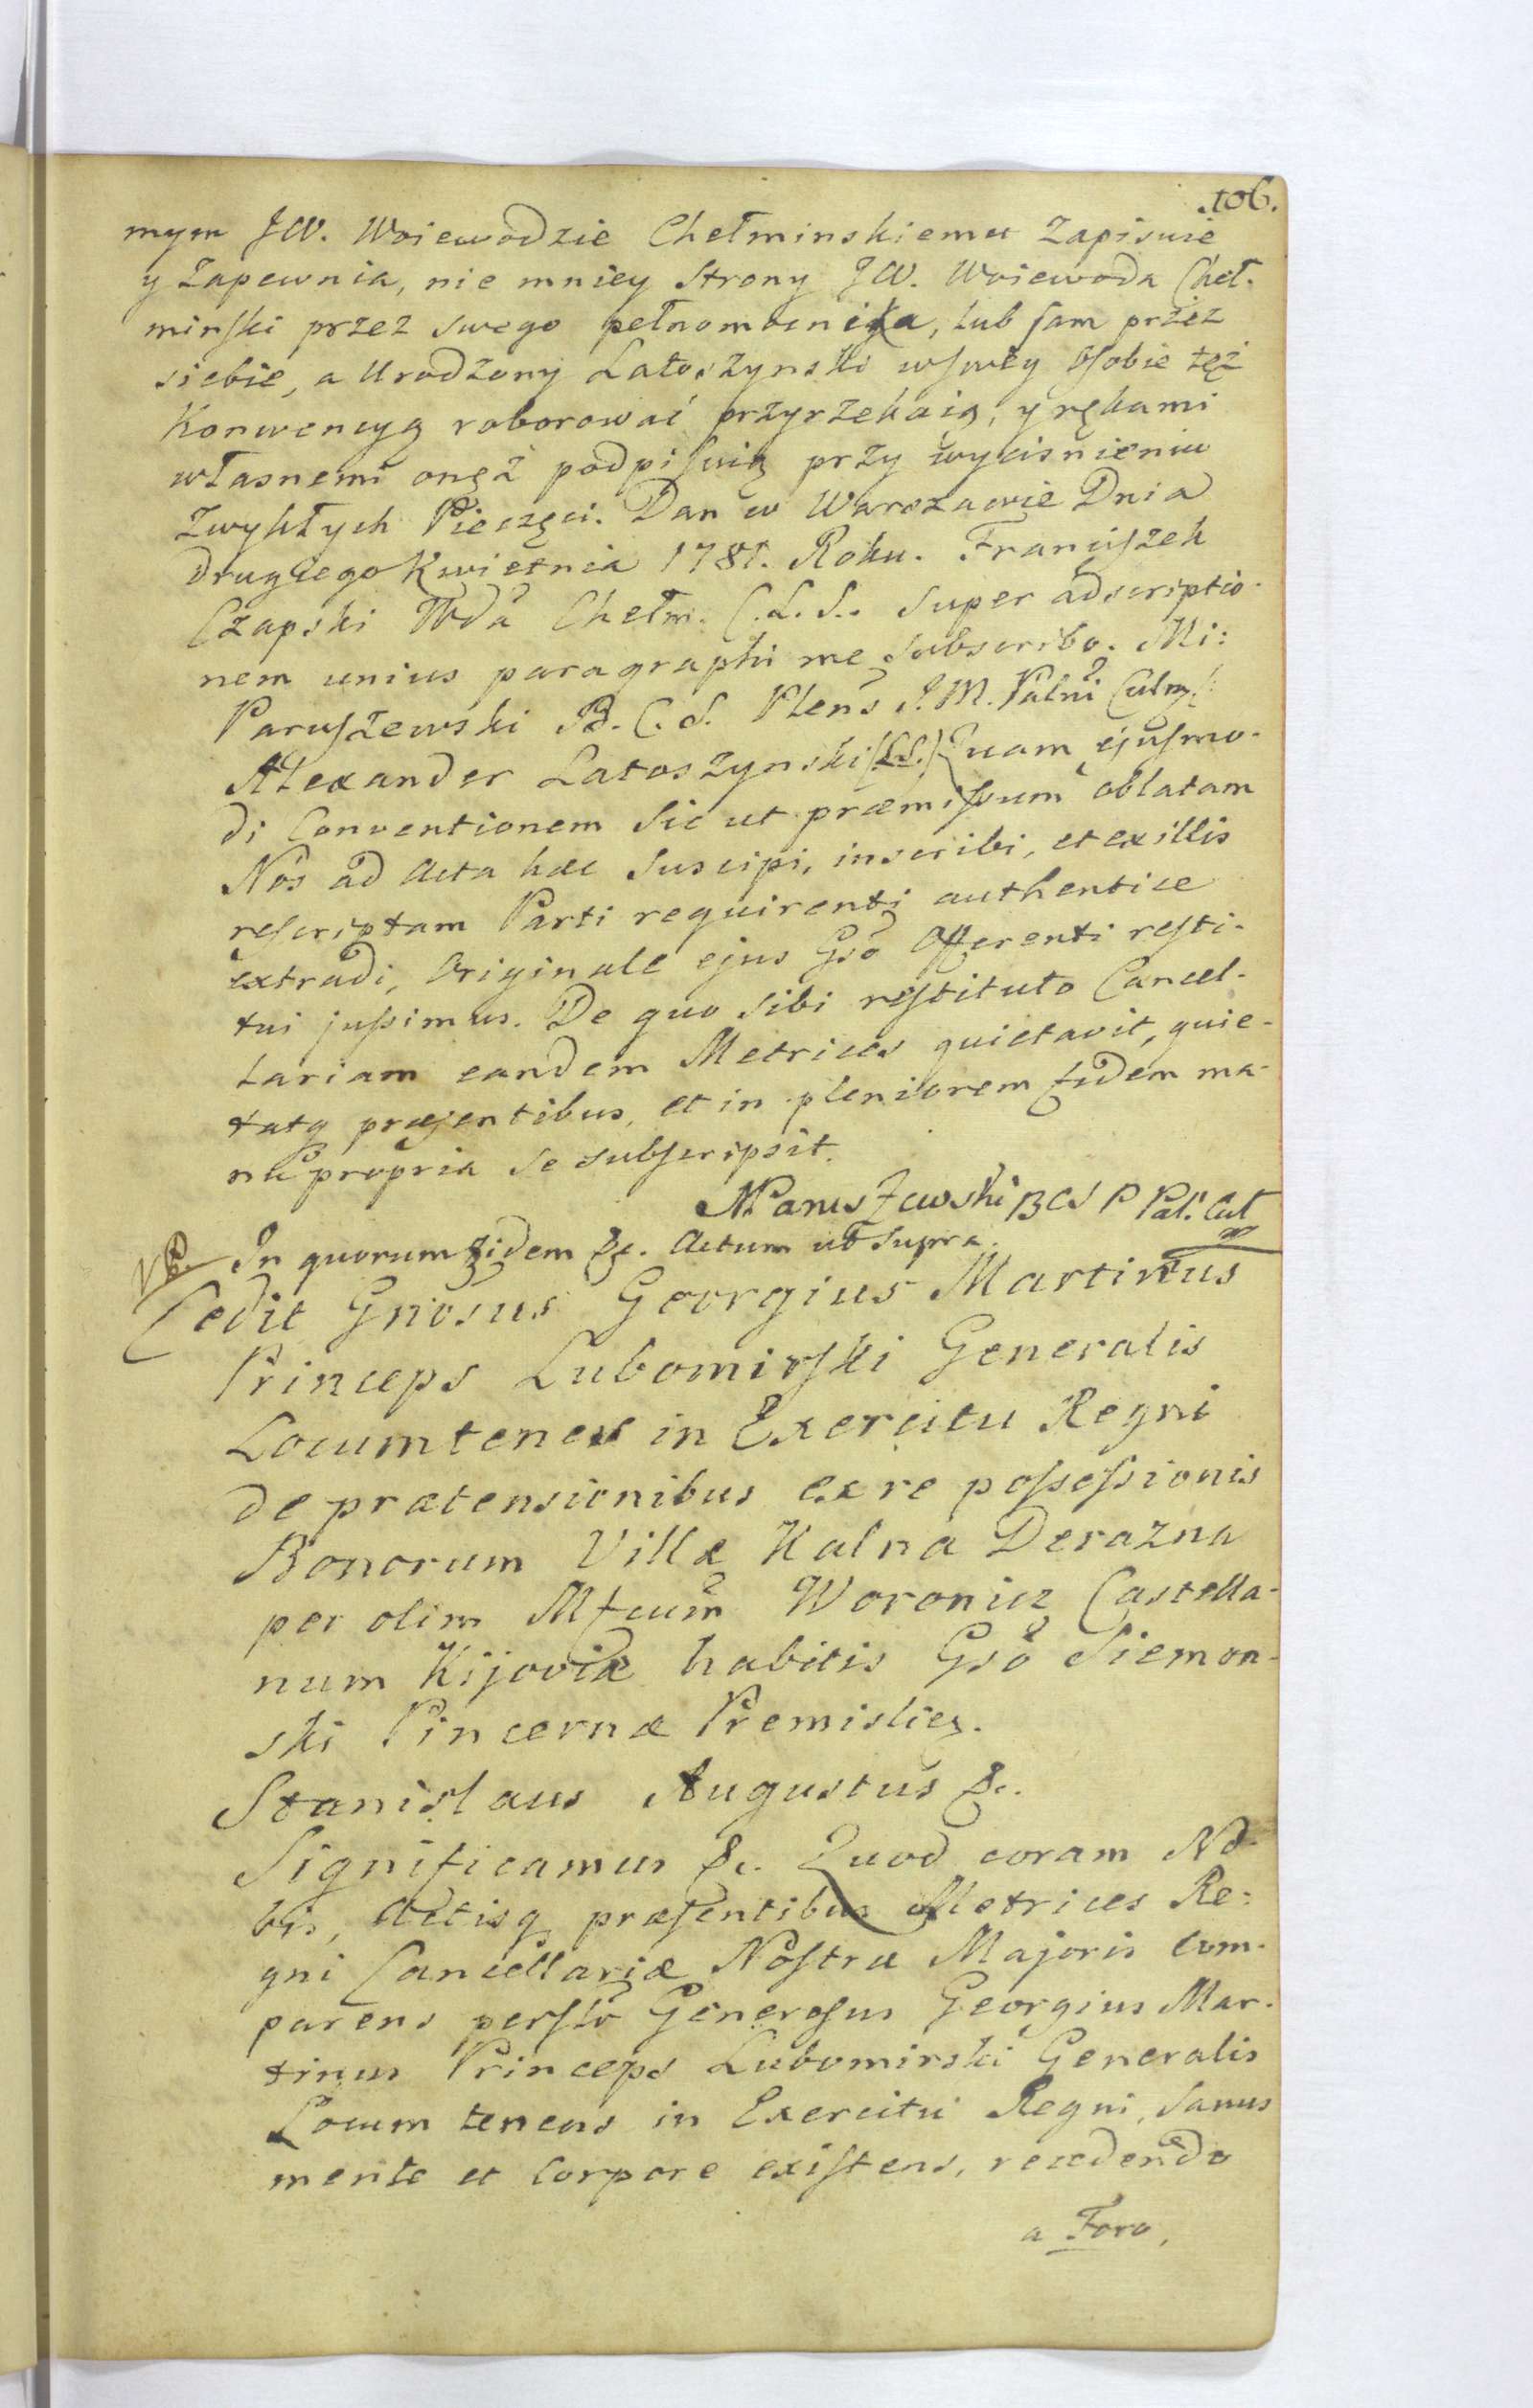 106.
mym JW. Woiewodzie Chełminskiemu zapisuie
y zapewnia, nie mniey strony JW. Woiewoda Cheł-
minski przez swego pełnomocnika, lub sam przez
siebie, a Urodzony Latoszynski w swey Osobie tęż
Konwencyą roborować przyrzekaią, y rękami
własnemi onęż podpisuią przy wyciśnieniu
zwykłych Pieczęci. Dan w Warszawie Dnia
drugiego Kwietnia 1781. Roku. Franciszek
Czapski Wda Chełm. C. L. S. Super adscriptio-
nem unius paragraphi me subscribo. Mi:
Paruszewski B. C. S. Plens J. M. Palni Culm.
Alexander Latoszynski (L.S.) Quam ejusmo-
di Conventionem sic ut præmissum oblatam
Nos ad Acta hæc suscipi, inscribi, et ex illis
rescriptam Parti requirenti authentice
extradi, Originale ejus Gso Offerenti resti-
tui jussimus. De quo sibi restituto Cancel-
lariam eandem Metrices quietavit, quie-
tatq præsentibus, et in pleniorem fidem ma-
nu propria se subscripsit.
MParuszewski BCS P Pal. Cul
In quorum fidem &c. Actum ut supra.
Cedit Gnosus Georgius Martinus
Princeps Lubomirski Generalis
Locumtenens in Exercitu Regni
de prætensionibus ex re possessionis
Bonorum Villæ Kalna Derazna
per olim Mfcum Woronicz Castella-
num Kijoviæ habitis Gso Siemon-
ski Pincernæ Premislien.
Stanislaus Augustus &c.
Significamus &c. Quod coram No-
bis, Actisq præsentibus Metrices Re-
gni Cancellariæ Nostræ Majoris com-
parens persłr Generosus Georgius Mar-
tinus Princeps Lubomirski Generalis
Locum tenens in Exercitu Regni, sanus
mente et corpore existens, recedendo
a Foro,